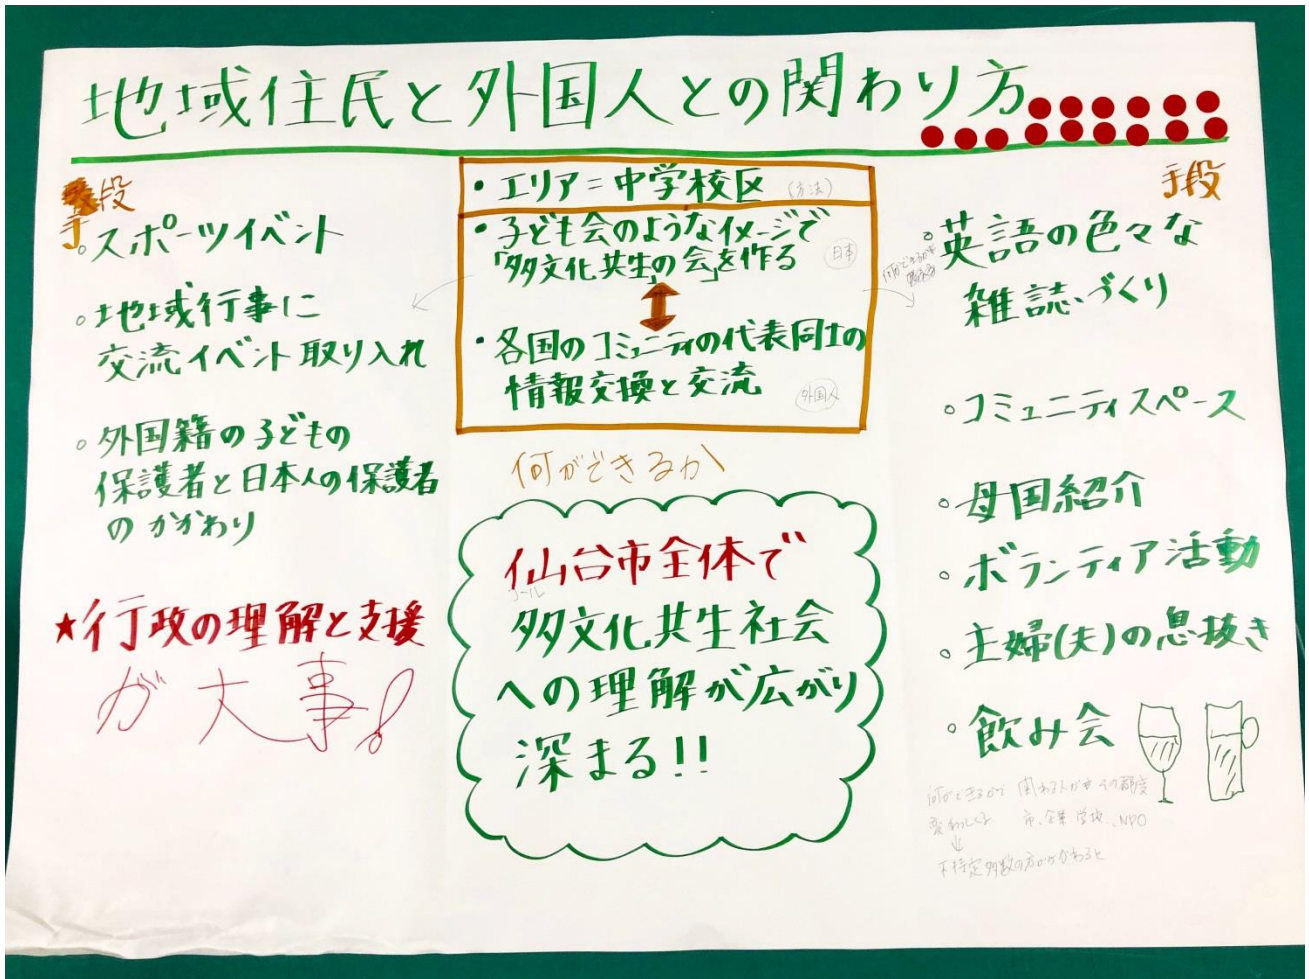 地域住民と外国人との関わり方
手段
◦スポーツイベント
◦地域行事に
交流イベント取り入れ
◦外国籍の子どもの
保護者と日本人の保護者
のかかわり
★行政の理解と支援
が大事!
・エリア=中学校区 (方法)
・子ども会のようなイメージで
「多文化共生の会」を作る 日本
・各国のコミュニティの代表同士の
情報交換と交流 外国人
何ができるか
仙台市全体で
ゴール
多文化共生社会
への理解が広がり
深まる!!
手段
◦英語の色々な
雑誌づくり
◦コミュニティスペース
◦母国紹介
◦ボランティア活動
◦主婦(夫)の息抜き
◦飲み会
何ができるかで 関わる人が
変わってくる 市、企業 学校、NPO
不特定多数の方がかかわると